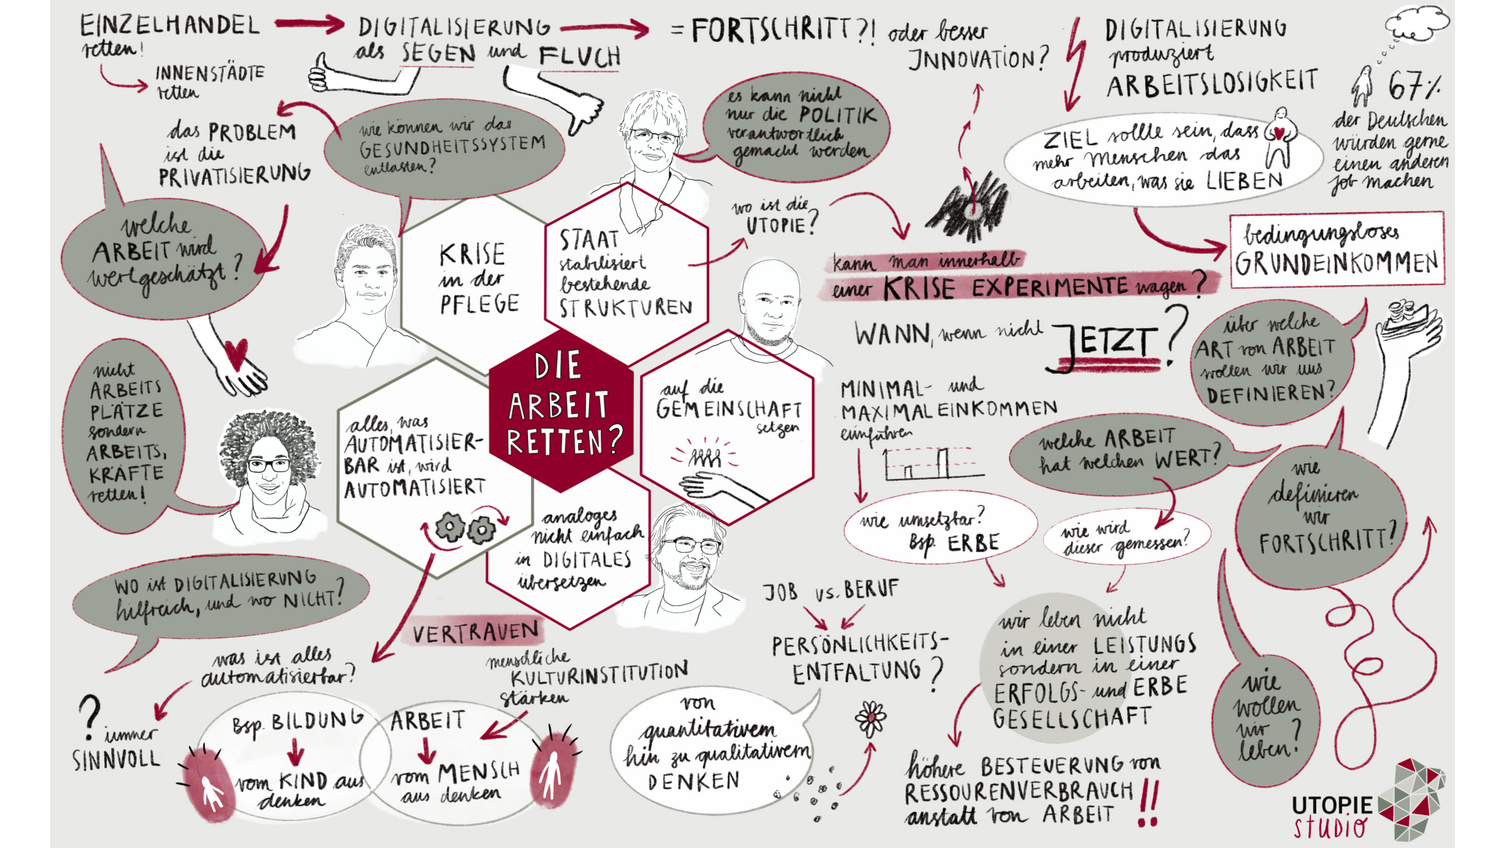 EINZELHANDEL
retten!
INNENSTÄDTE
retten
DIGITALISIERUNG
als SEGEN und FLUCH
= FORTSCHRITT?! oder besser
INNOVATION?
DIGITALISIERUNG
produziert
ARBEITSLOSIGKEIT
67%
der Deutschen
würden gerne
einen anderen
Job machen
das PROBLEM
ist die
PRIVATISIERUNG
wie können wir das
GESUNDHEITSSYSTEM
entlasten?
es kann nicht
nur die POLITIK
verantwortlich
gemacht werden
ZIEL sollte sein, dass
mehr Menschen das
arbeiten, was sie LIEBEN
welche
ARBEIT wird
wertgeschätzt?
KRISE
in der
PFLEGE
STAAT
stabilisiert
bestehende
STRUKTUREN
wo ist die
UTOPIE?
kann man innerhalb
einer KRISE EXPERIMENTE wagen?
bedingungsloses
GRUNDEINKOMMEN
WANN, wenn nicht JETZT?
über welche
ART von ARBEIT
wollen wir uns
DEFINIEREN?
nicht
ARBEITS
PLÄTZE
sondern
ARBEITS,
KRÄFTE
retten!
DIE
ARBEIT
RETTEN?
auf die
GEMEINSCHAFT
setzen
MINIMAL- und
MAXIMALEINKOMMEN
einführen
alles, was
AUTOMATISIER-
BAR ist, wird
AUTOMATISIERT
welche ARBEIT
hat welchen WERT?
wie
definieren
wir
FORTSCHRITT?
analoges
nicht einfach
in DIGITALES
übersetzen
wie umsetzbar?
Bsp. ERBE
wie wird
dieser gemessen?
WO ist DIGITALISIERUNG
hilfreich, und wo NICHT?
VERTRAUEN
JOB vs. BERUF
PERSÖNLICHKEITS-
ENTFALTUNG?
wir leben nicht
in einer LEISTUNGS
sondern in einer
ERFOLGS- und ERBE
GESELLSCHAFT
was ist alles
automatisierbar?
menschliche
KULTURINSTITUTION
stärken
? immer
SINNVOLL
Bsp. BILDUNG
vom KIND aus
denken
ARBEIT
vom MENSCH
aus denken
von
quantitativem
hin zu qualitativem
DENKEN
wie
wollen
wir
leben?
höhere BESTEUERUNG von
RESSOURENVERBRAUCH
anstatt von ARBEIT !!
UTOPIE
STUDIO